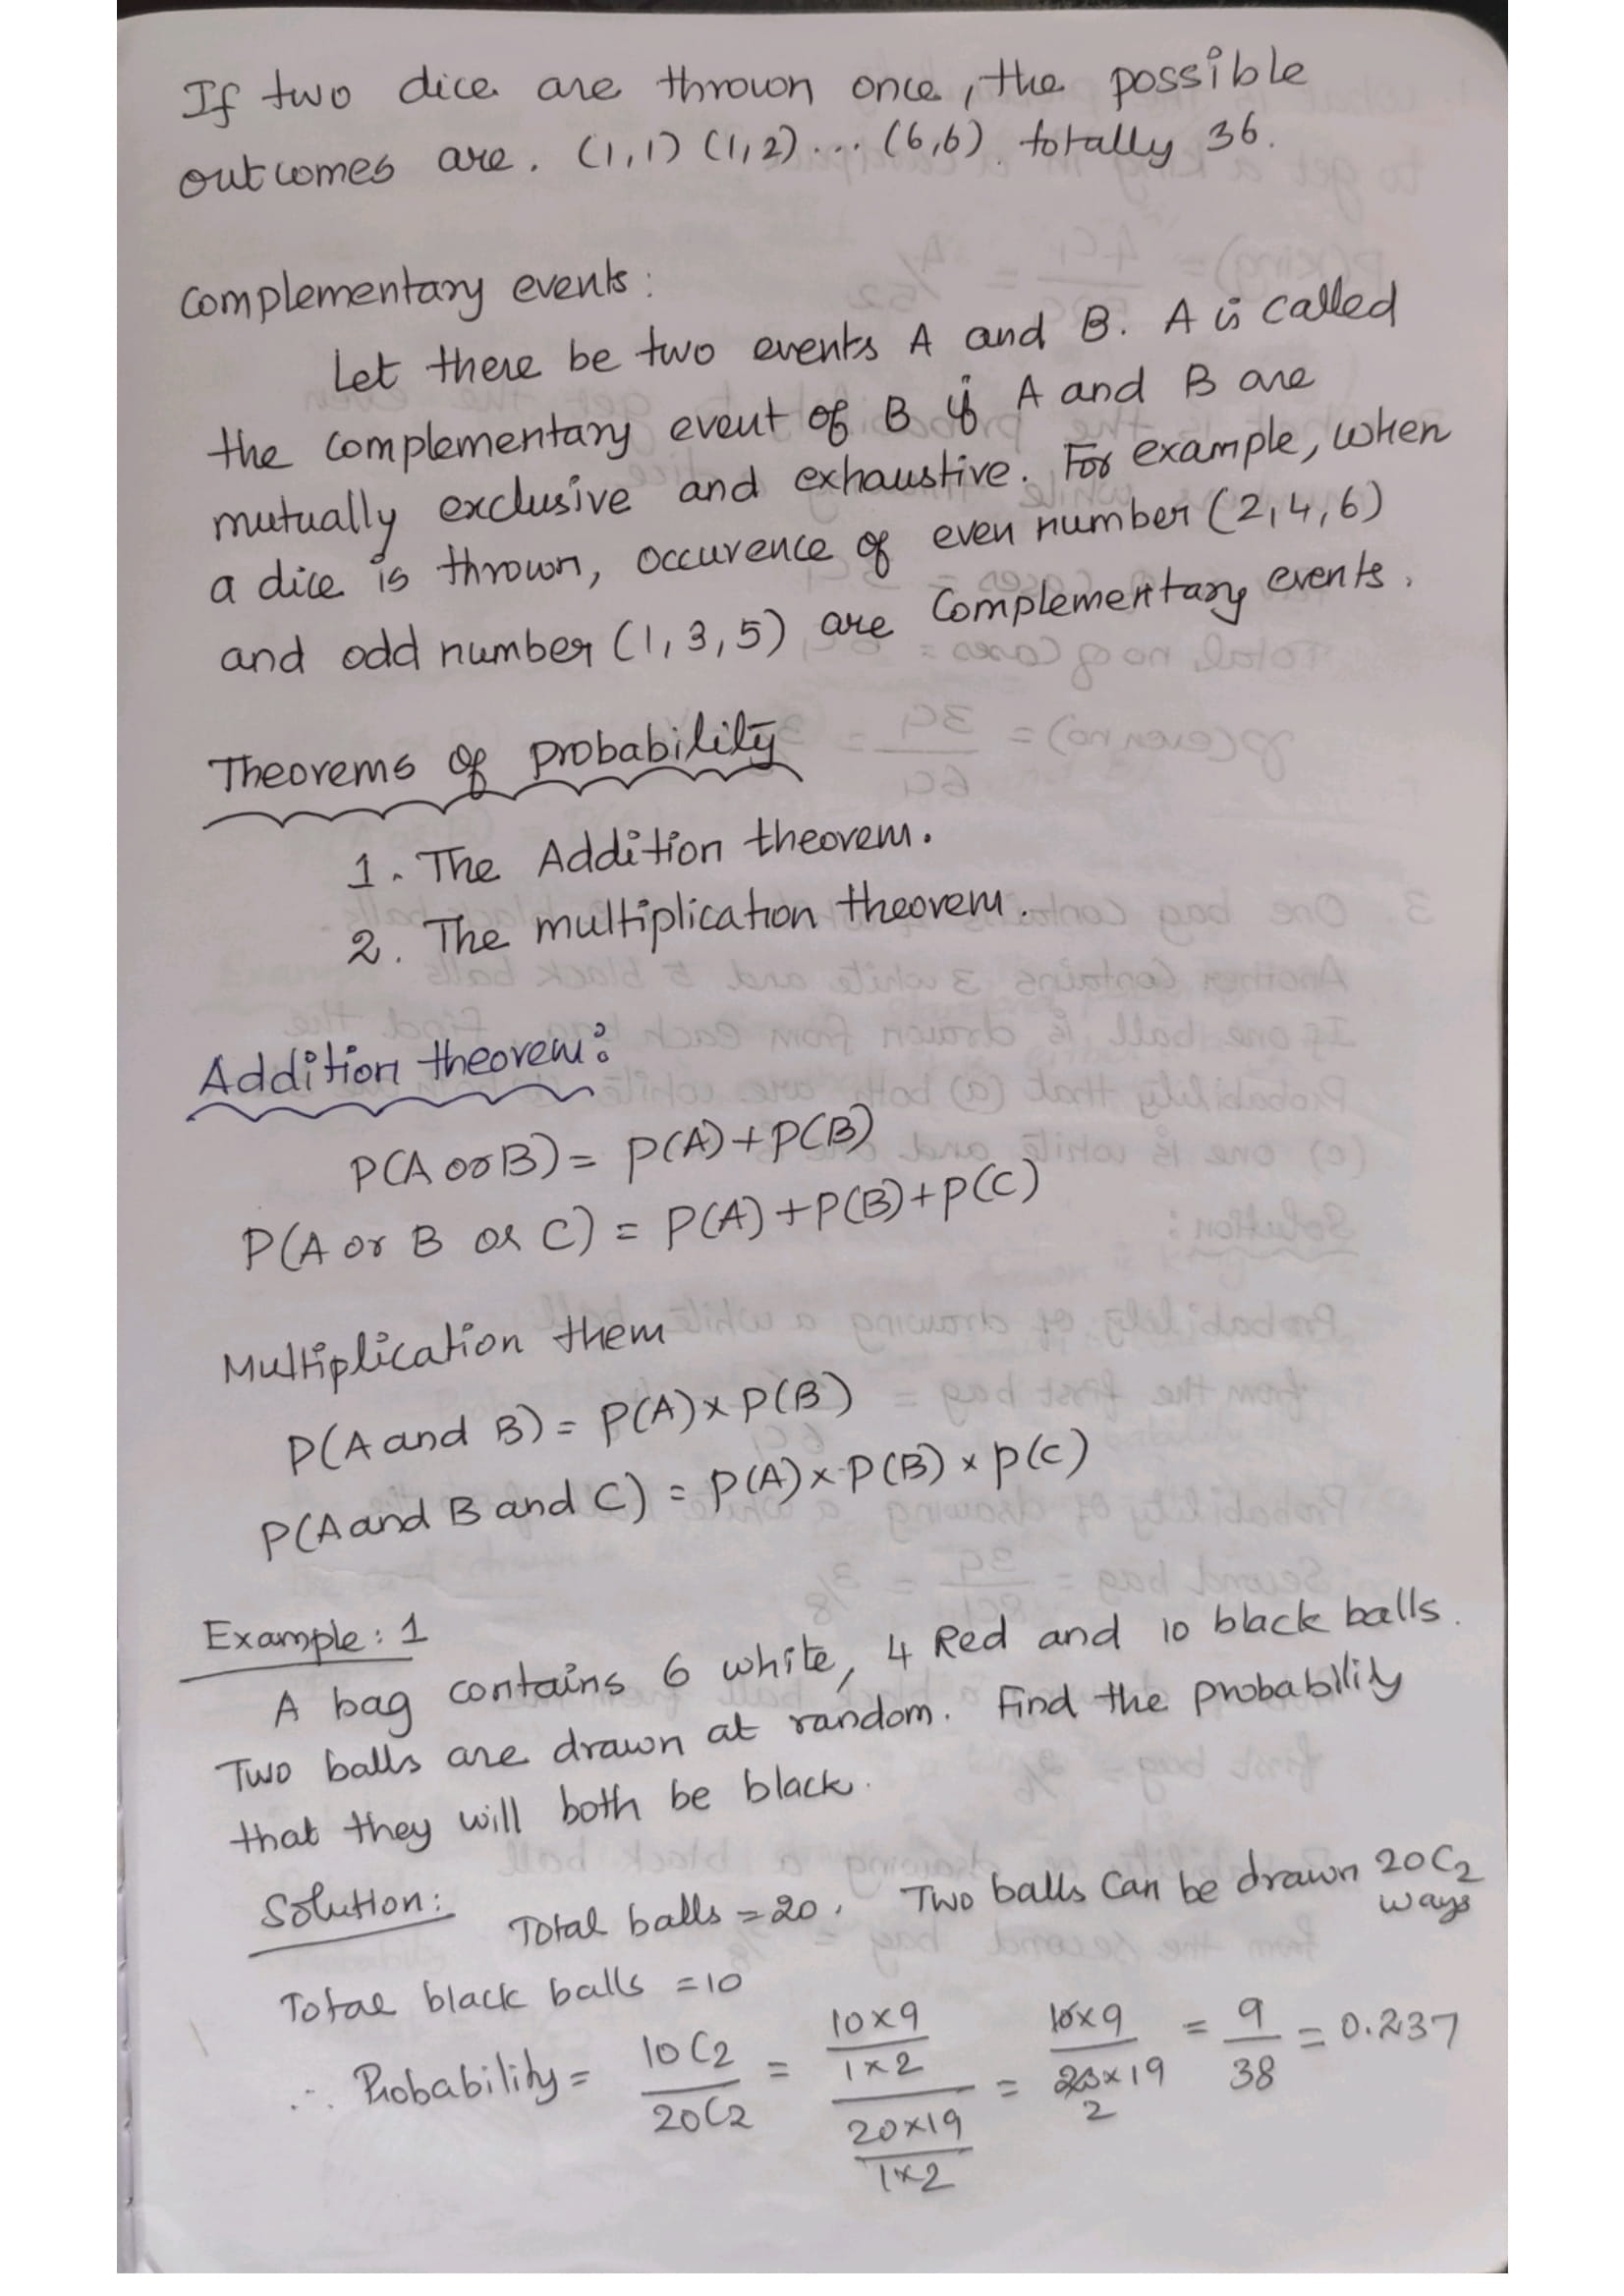 If two dice are thrown once, the possible
outcomes are. (1,1) (1,2)... (6,6). totally 36.
Complementary events:
Let there be two events A and B. A is called
the complementary event of B if A and B are
mutually exclusive and exhaustive. For example, when
a dice is thrown, occurence of even number (2,4,6)
and odd number (1,3,5) are Complementary events.
Theorems of probability
1. The Addition theorem.
2. The multiplication theorem.
Addition theorem:
P(A or B) = P(A)+P(B)
P(A or B or C) = P(A)+P(B)+P(C)
Multiplication them
P(A and B) = P(A)×P(B)
P(A and B and C) = P(A)×P(B)×P(C)
Example: 1
A bag contains 6 white, 4 Red and 10 black balls.
Two balls are drawn at random. Find the probability
that they will both be black.
Solution: Total balls = 20. Two balls Can be drawn 20C2
ways
Total black balls = 10
∴ Probability = 10C2/20C2 = (10×9/1×2)/(20×19/1×2) = 10×9/20×19 2 = 9/38 = 0.237